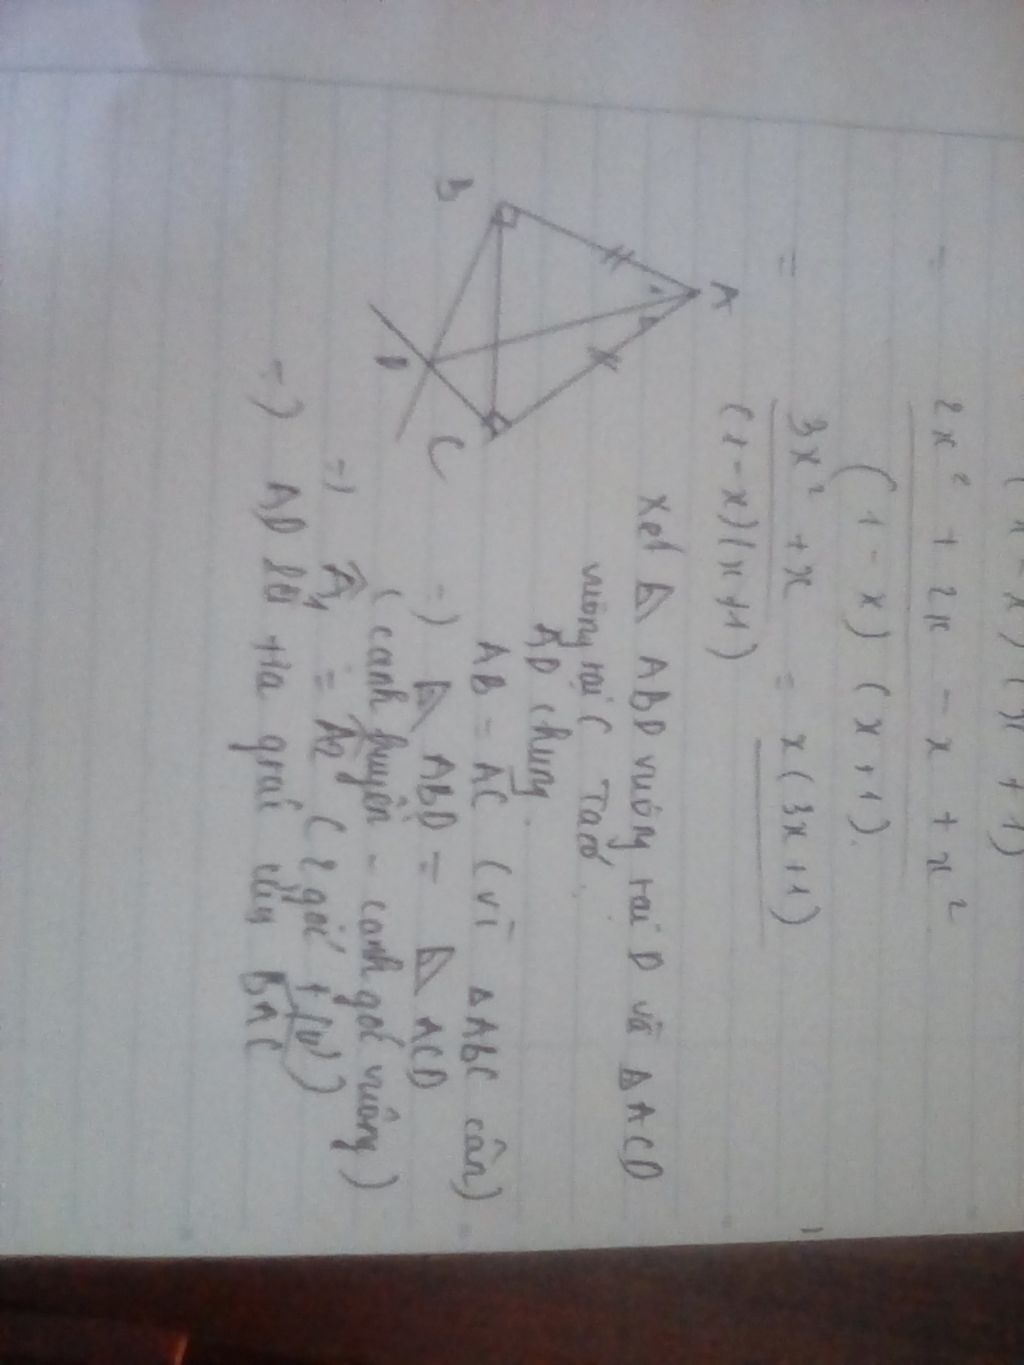 (x - x)(x + 1)
= 2x² + 2x - x + x²
(1 - x)(x + 1).
= 3x² + x = x(3x + 1)
(1 - x)(x + 1)
A
B
C
D
Xét ⊿ ABD vuông tại D và ΔACD
vuông tại C Ta có.
AD chung.
AB = AC (vì ΔABC cân)
=) ⊿ ABD = ⊿ ACD
(cạnh huyền - cạnh góc vuông)
=) Â₁ = Â₂ (2 góc t/ứ)
=) AD là tia giác của BAC